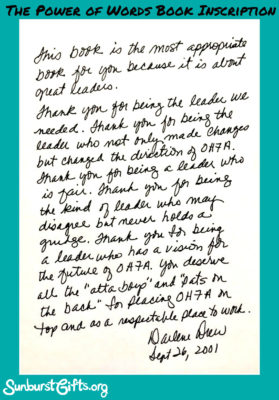 The Power of Words Book Inscription
This book is the most appropriate
book for you because it is about
great leaders.
Thank you for being the leader we
needed. Thank you for being the
leader who not only made changes
but changed the direction of OA7A.
Thank you for being a leader who
is fair. Thank you for being
the kind of leader who may
disagree but never holds a
grudge. Thank you for being
a leader who has a vision for
the future of OA7A. You deserve
all the "atta boys" and "pats on
the back" for placing OH7A on
top and as a respectable place to work.
Darlene Drew
Sept 26, 2001
SunburstGifts.org